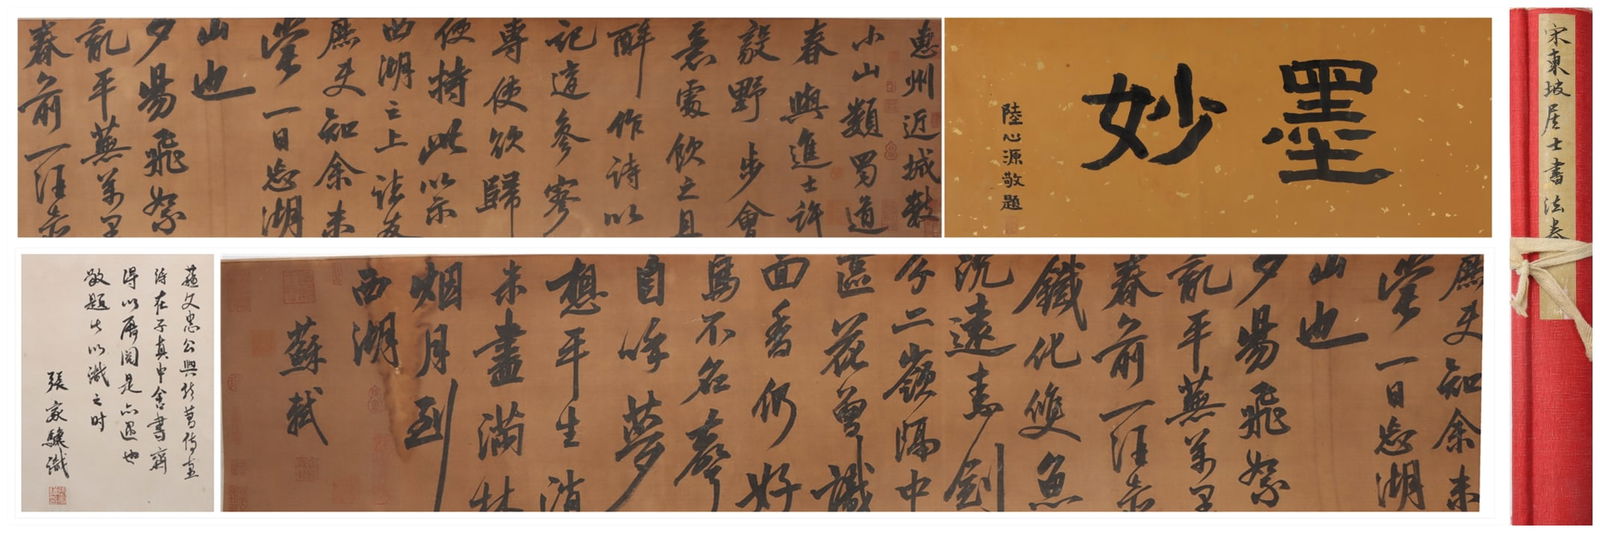 宋東坡居士書法卷
墨妙
陸心源敬題
惠州近城數
小山類蜀道
春與進士許
毅野步會
意處飲之且
醉作詩以
記適參寥
專使欲歸
使持此以示
西湖之上諸友
庶使知余未
嘗一日忘湖
山也
夕陽飛絮
亂平蕪萬里
春前一酒壺
庶使知余未
嘗一日忘湖
山也
夕陽飛絮
亂平蕪萬里
春前一酒壺
鐵化雙魚
沉遠素劍
分二嶺隔中
區花曾識
面香仍好
鳥不名聲
自呼夢
想平生消
未盡滿林
烟月到
西湖
蘇軾
蘇文忠公與
詩在子真申舍書齋
得以展閱是亦遇也
敬題此以識之时
張家驤識